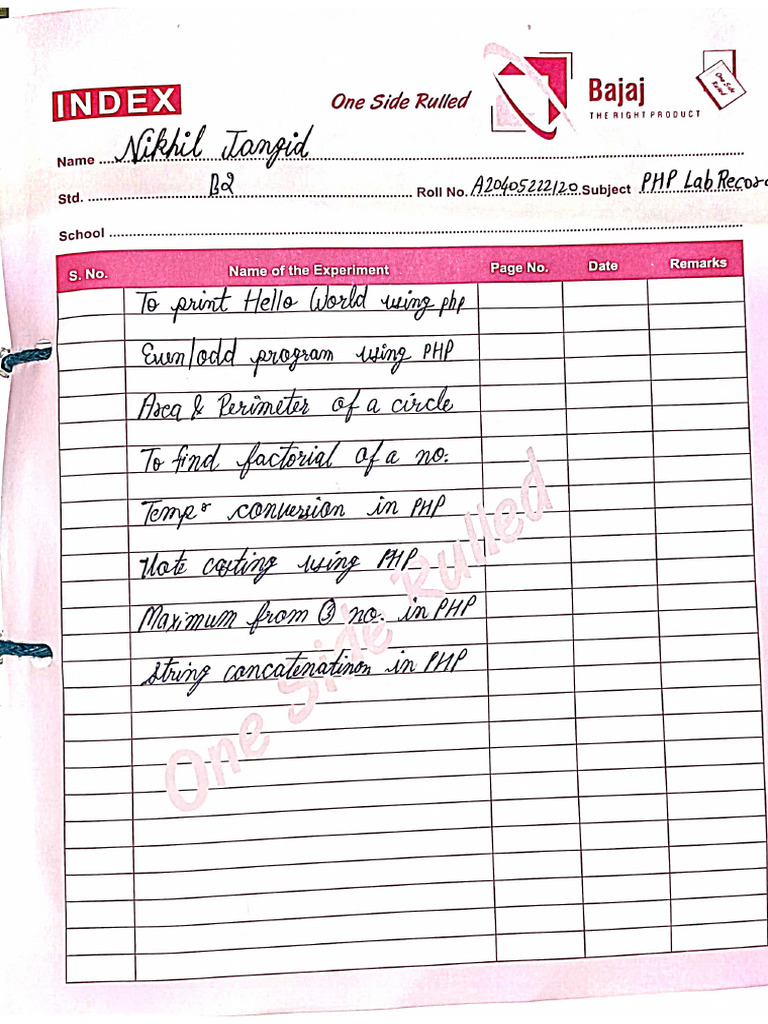 INDEX
One Side Rulled
Bajaj
THE RIGHT PRODUCT
One Side Ruled
Name Nikhil Jangid
Std. B2 Roll No. A20405222120 Subject PHP Lab Record
School
S. No. Name of the Experiment Page No. Date Remarks
To print Hello World using php
Even/odd program using PHP
Area & Perimeter of a circle
To find factorial of a no.
Tempr conversion in PHP
Vote casting using PHP
Maximum from 3 no. in PHP
String concatenatinon in PHP
One Side Rulled